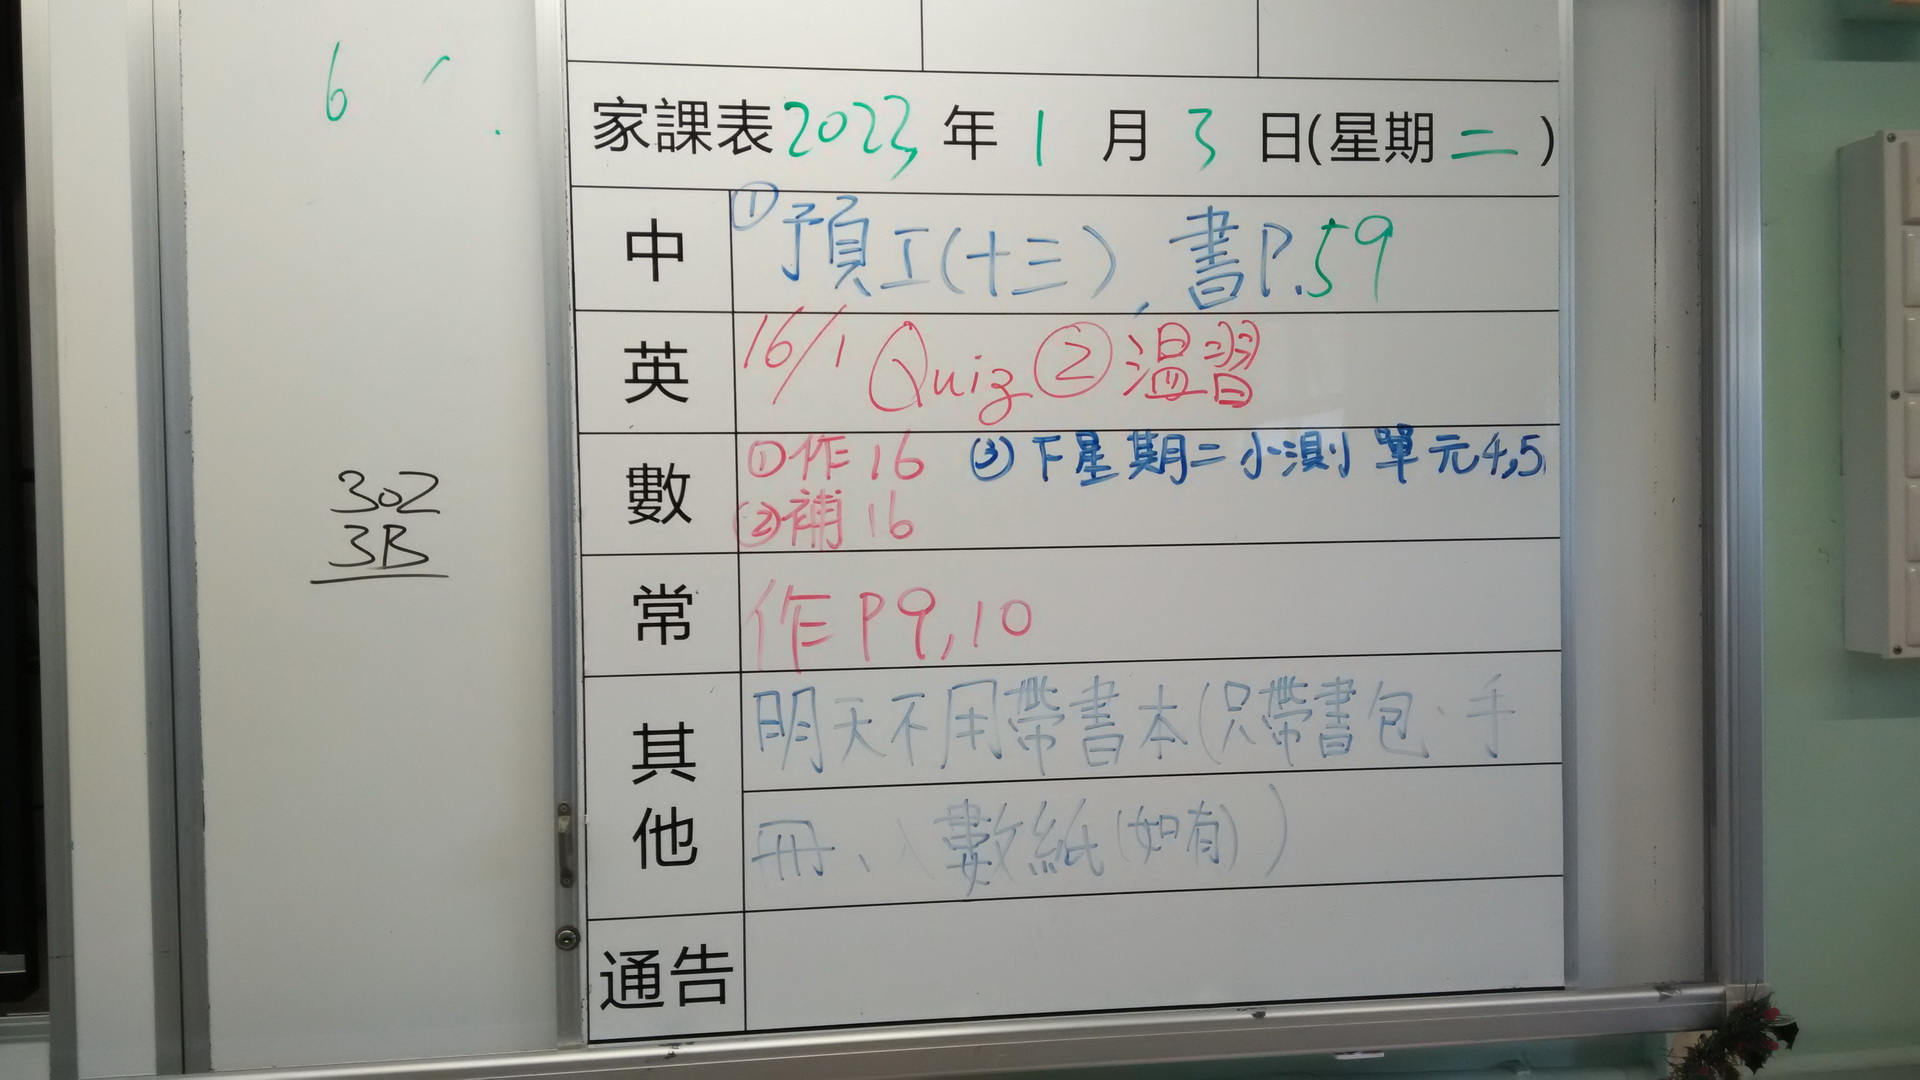 6
302
3B
家課表2023年1月3日(星期二)
中 ①預工(十三)、書P.59
英 16/1 Quiz ② 溫習
數 ①作16 ③下星期二小測 單元4,5
②補16
常 作P9,10
其他 明天不用帶書本(只帶書包、手
冊、數紙(如有))
通告